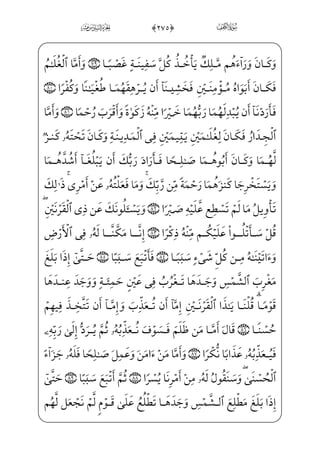 ﴿٢٧٥﴾
وَكَانَ وَرَآءَهُم مَّلِكٌ يَأْخُذُ كُلَّ سَفِينَةٍ غَصْبًا ۝٧٩ وَأَمَّا ٱلْغُلَٰمُ
فَكَانَ أَبَوَاهُ مُؤْمِنَيْنِ فَخَشِينَآ أَن يُرْهِقَهُمَا طُغْيَٰنًا وَكُفْرًا ۝٨٠
فَأَرَدْنَآ أَن يُبْدِلَهُمَا رَبُّهُمَا خَيْرًا مِّنْهُ زَكَوٰةً وَأَقْرَبَ رُحْمًا ۝٨١ وَأَمَّا
ٱلْجِدَارُ فَكَانَ لِغُلَٰمَيْنِ يَتِيمَيْنِ فِى ٱلْمَدِينَةِ وَكَانَ تَحْتَهُۥ كَنزٌ
لَّهُمَا وَكَانَ أَبُوهُمَا صَٰلِحًا فَأَرَادَ رَبُّكَ أَن يَبْلُغَآ أَشُدَّهُمَا
وَيَسْتَخْرِجَا كَنزَهُمَا رَحْمَةً مِّن رَّبِّكَ ۚ وَمَا فَعَلْتُهُۥ عَنْ أَمْرِى ۚ ذَٰلِكَ
تَأْوِيلُ مَا لَمْ تَسْطِع عَّلَيْهِ صَبْرًا ۝٨٢ وَيَسْـَٔلُونَكَ عَن ذِى ٱلْقَرْنَيْنِ ۖ
قُلْ سَأَتْلُوا۟ عَلَيْكُم مِّنْهُ ذِكْرًا ۝٨٣ إِنَّا مَكَّنَّا لَهُۥ فِى ٱلْأَرْضِ
وَءَاتَيْنَٰهُ مِن كُلِّ شَىْءٍ سَبَبًا ۝٨٤ فَأَتْبَعَ سَبَبًا ۝٨٥ حَتَّىٰٓ إِذَا بَلَغَ
مَغْرِبَ ٱلشَّمْسِ وَجَدَهَا تَغْرُبُ فِى عَيْنٍ حَمِئَةٍ وَوَجَدَ عِندَهَا
قَوْمًا ۗ قُلْنَا يَٰذَا ٱلْقَرْنَيْنِ إِمَّآ أَن تُعَذِّبَ وَإِمَّآ أَن تَتَّخِذَ فِيهِمْ
حُسْنًا ۝٨٦ قَالَ أَمَّا مَن ظَلَمَ فَسَوْفَ نُعَذِّبُهُۥ ثُمَّ يُرَدُّ إِلَىٰ رَبِّهِۦ
فَيُعَذِّبُهُۥ عَذَابًا نُّكْرًا ۝٨٧ وَأَمَّا مَنْ ءَامَنَ وَعَمِلَ صَٰلِحًا فَلَهُۥ جَزَآءً
ٱلْحُسْنَىٰ ۖ وَسَنَقُولُ لَهُۥ مِنْ أَمْرِنَا يُسْرًا ۝٨٨ ثُمَّ أَتْبَعَ سَبَبًا ۝٨٩ حَتَّىٰٓ
إِذَا بَلَغَ مَطْلِعَ ٱلشَّمْسِ وَجَدَهَا تَطْلُعُ عَلَىٰ قَوْمٍ لَّمْ نَجْعَل لَّهُم